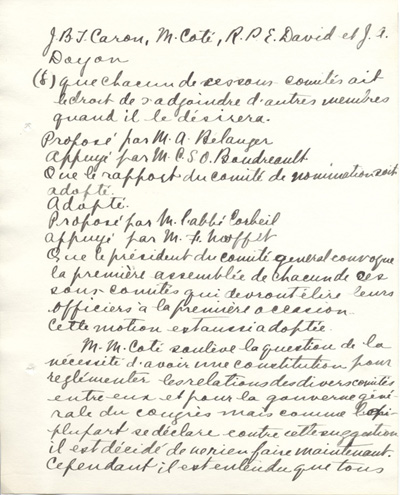 J. B. T. Caron, M. Coté, R. P. E. David et J. A.
Doyon
(6) que chacun de ces sous-comités ait
le droit de s'adjoindre d'autres membres
quand il le désirera.
Proposé par M. A. Bélanger
Appuyé par M. C. S. O. Boudreault
Que le rapport du comité de nomination soit
adopté.
Adopté.
Proposé par M. l'abbé Corbeil
appuyé par M. F.
Que le président du comité general convoque
la première assemblée de chacun de ces
sous-comités qui devront élire leurs
officiers à la première occasion.
Cette motion est aussi adoptée.
M. M. Coté soulève la question de la
nécessité d'avoir une constitution pour
reglémenter les relations des divers comités
entre eux et pour la gouverne géné-
rale du congrès mais comme
plupart se déclare contre cette suggestion
il est décidé de ne rien faire maintenant.
Cependant il est entendu que tous